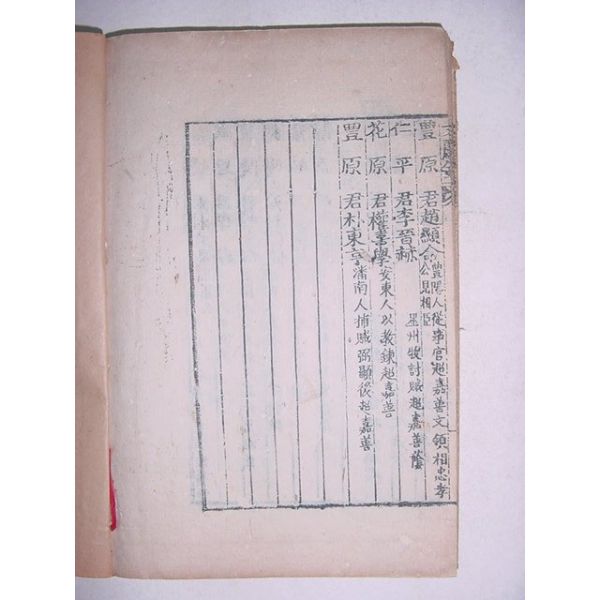 豐原君趙顯命豐陽人從事官超嘉善文領相忠孝
公見相臣
仁平君李普赫星州牧討賊超嘉善蔭
花原君權喜學安東人以敎鍊超嘉善
豐原君朴東亨潘南人捕賊弼顯後超嘉善